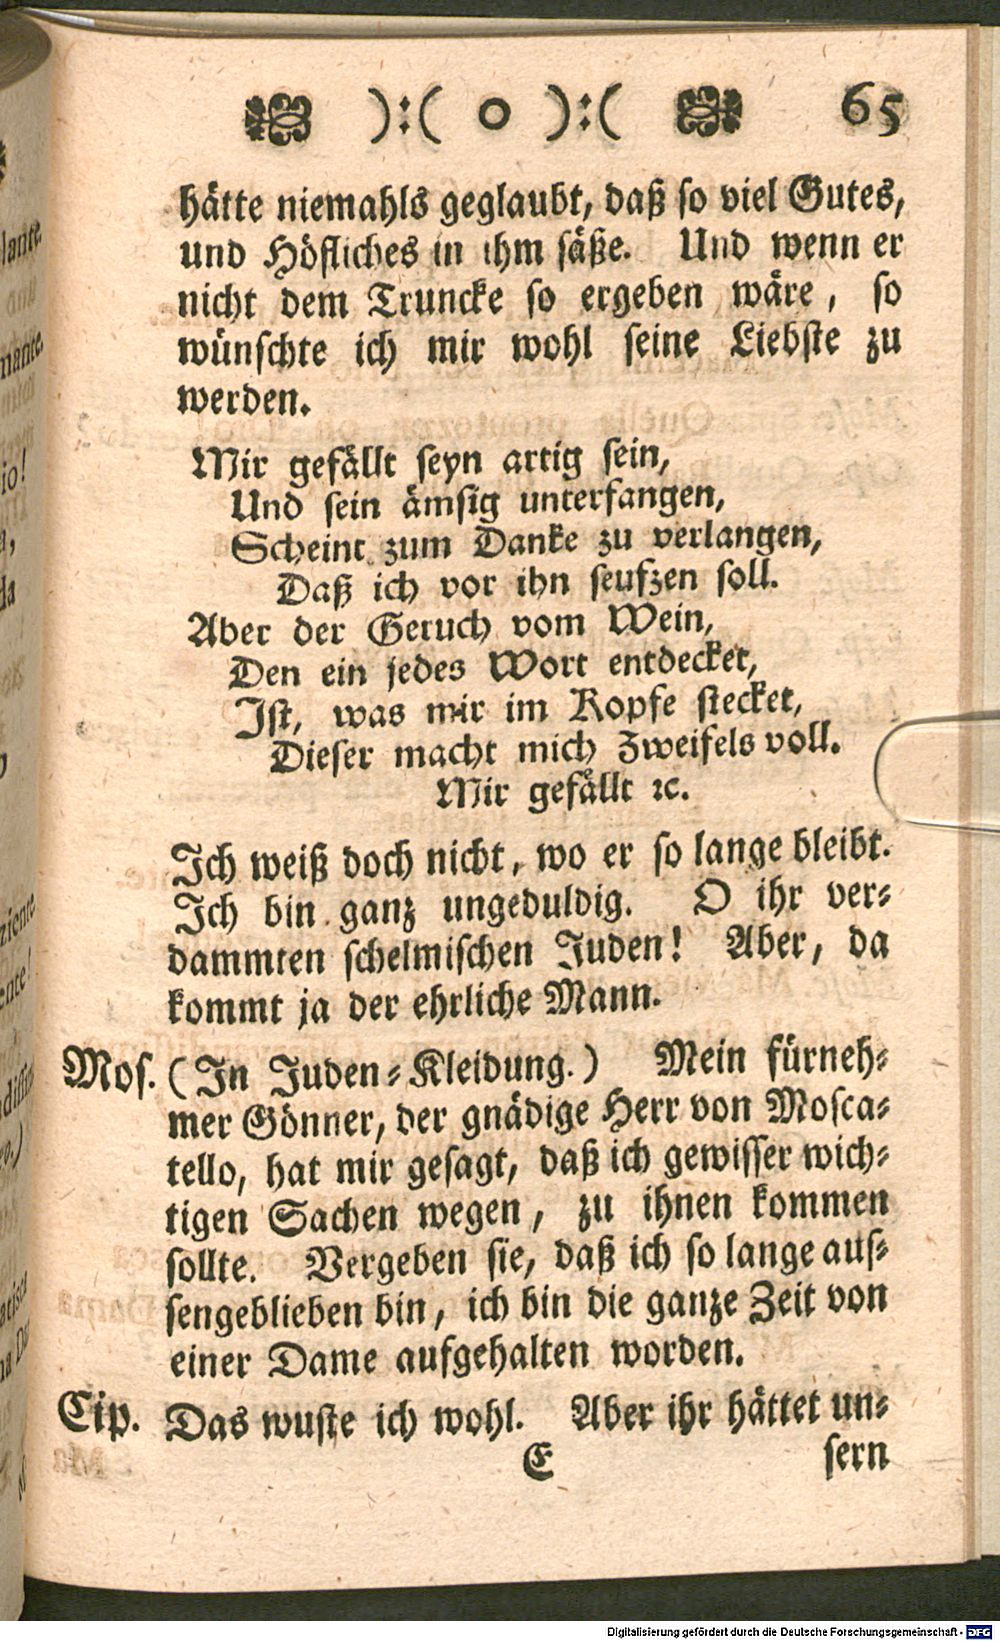 ):( o ):( 65
hätte niemahls geglaubt, daß so viel Gutes,
und Höfliches in ihm säße. Und wenn er
nicht dem Truncke so ergeben wäre, so
wünschte ich mir wohl seine Liebste zu
werden.
Mir gefällt seyn artig sein,
Und sein ämsig unterfangen,
Scheint zum Danke zu verlangen,
Daß ich vor ihn seufzen soll.
Aber der Geruch vom Wein,
Den ein jedes Wort entdecket,
Ist, was mir im Kopfe stecket,
Dieser macht mich Zweifels voll.
Mir gefällt ꝛc.
Ich weiß doch nicht, wo er so lange bleibt.
Ich bin ganz ungeduldig. O ihr ver-
dammten schelmischen Juden! Aber, da
kommt ja der ehrliche Mann.
Mos. (In Juden-Kleidung.) Mein fürneh-
mer Gönner, der gnädige Herr von Mosca-
tello, hat mir gesagt, daß ich gewisser wich-
tigen Sachen wegen, zu ihnen kommen
sollte. Vergeben sie, daß ich so lange aus-
sengeblieben bin, ich bin die ganze Zeit von
einer Dame aufgehalten worden.
Cip. Das wuste ich wohl. Aber ihr hättet un-
E sern
Digitalisierung gefördert durch die Deutsche Forschungsgemeinschaft - DFG